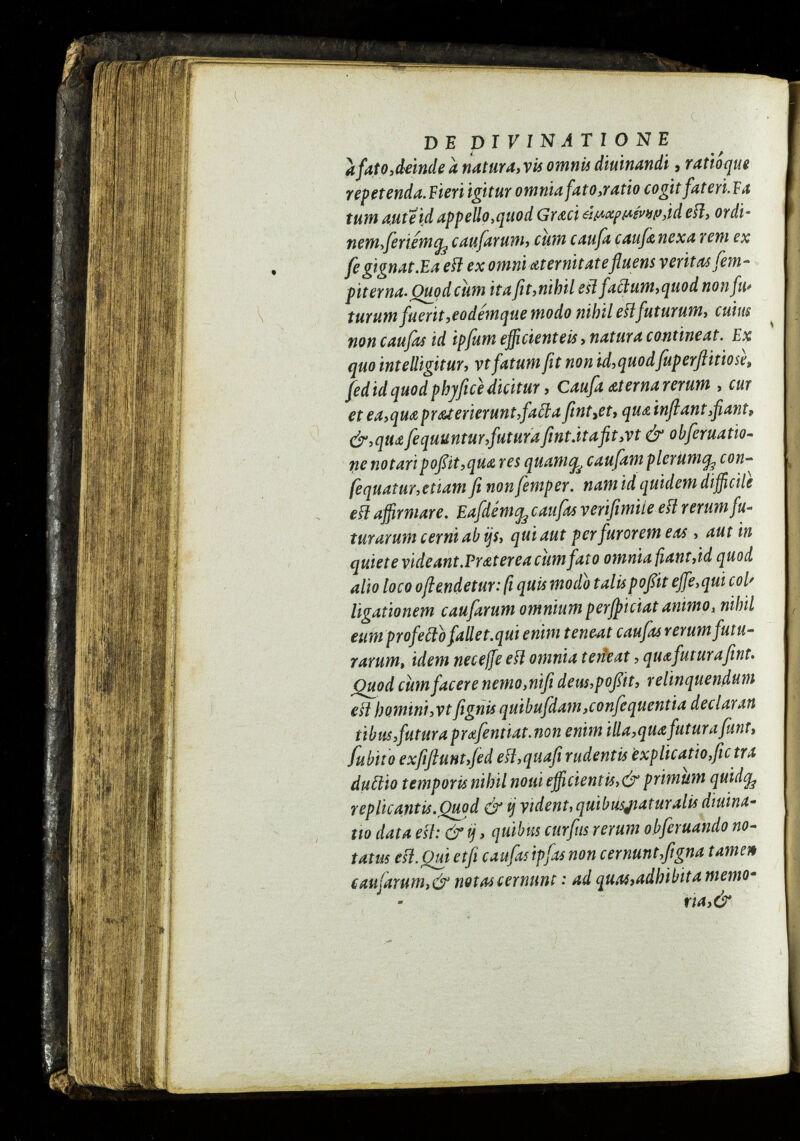 DE DIVINATIONE
à fato,deinde à natura,vis omnis diuinandi, ratióque
repetenda.Fieri igitur omnia fato,ratio cogit fateri.Fa
tum autē id appello,quod Græci εἱμαρμένην,id est, ordi-
nem,seriémq; causarum, cùm causa causæ nexa rem ex
se gignat.Ea est ex omni æternitate fluens veritas sem-
piterna. Quod cùm ita sit,nihil est factum,quod non fu-
turum fuerit,eodémque modo nihil est futurum, cuius
non causas id ipsum efficienteis, natura contineat. Ex
quo intelligitur, vt fatum sit non id,quod superstitiosè,
sed id quod physicè dicitur, Causa æterna rerum , cur
et ea,quæ præterierunt,facta sint,et, quæ instant,fiant,
&,quæ sequuntur,futura sint.ita fit,vt & obseruatio-
ne notari possit,quæ res quamq; causam plerumq; con-
sequatur,etiam si non semper. nam id quidem difficile
est affirmare. Easdémq; causas verisimile est rerum fu-
turarum cerni ab ijs, qui aut per furorem eas , aut in
quiete videant.Præterea cùm fato omnia fiant,id quod
alio loco ostendetur: si quis modò talis possit esse,qui col-
ligationem causarum omnium perspiciat animo, nihil
eum profectò fallet.qui enim teneat causas rerum futu-
rarum, idem necesse est omnia teneat , quæ futura sint.
Quod cùm facere nemo,nisi deus,possit, relinquendum
est homini,vt signis quibusdam,consequentia declaran
tibus,futura præsentiat.non enim illa,quæ futura sunt,
subitò existunt,sed est,quasi rudentis explicatio,sic tra
ductio temporis nihil noui efficientis,& primùm quidq;
replicantis.Quod & ij vident, quibus naturalis diuina-
tio data est: & ij, quibus cursus rerum obseruando no-
tatus est. Qui etsi causas ipsas non cernunt,signa tamen
causarum,& notas cernunt : ad quas,adhibita memo-
ria,&